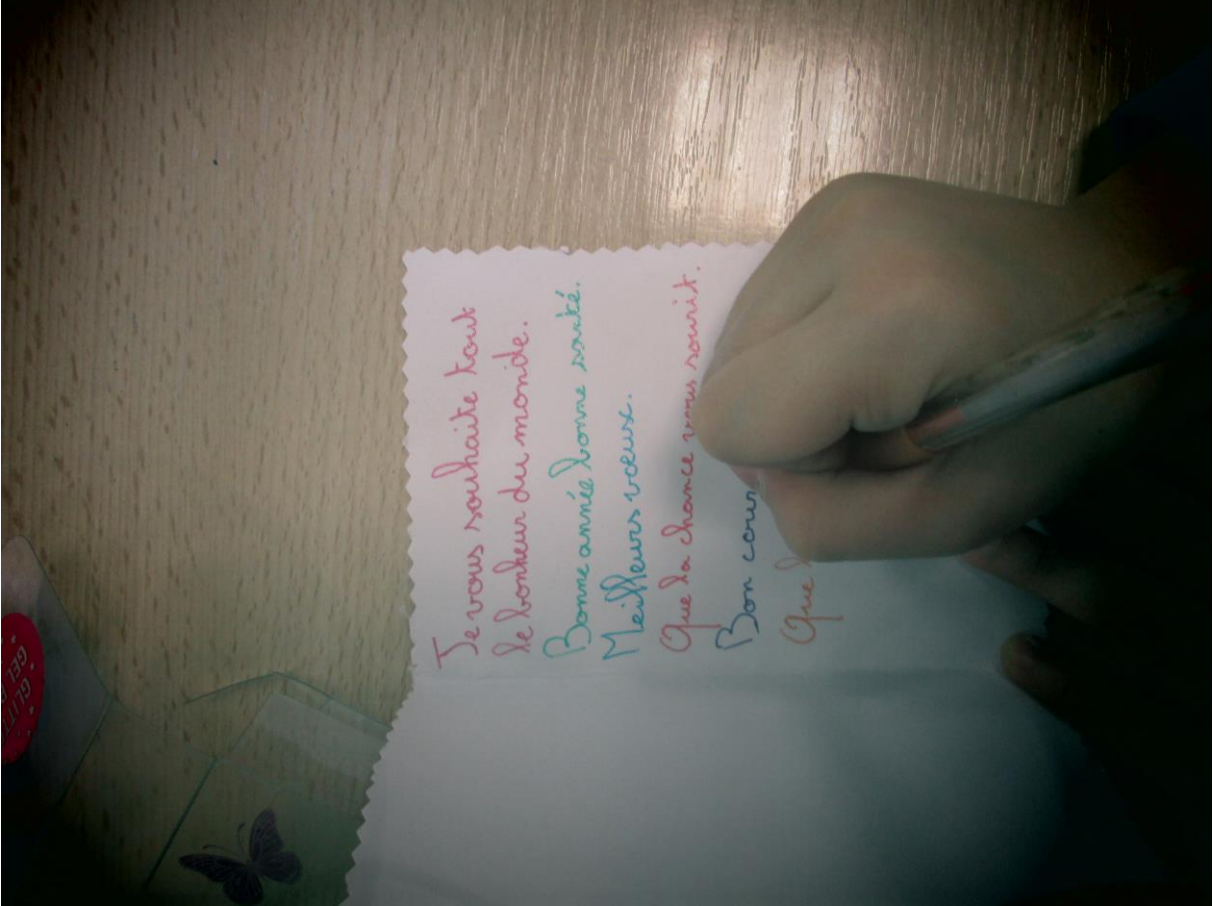 Je vous souhaite tout
le bonheur du monde.
Bonne année bonne santé.
Meilleurs vœux.
Que la chance vous sourit.
Bon cour
Que
GLIT
GEL